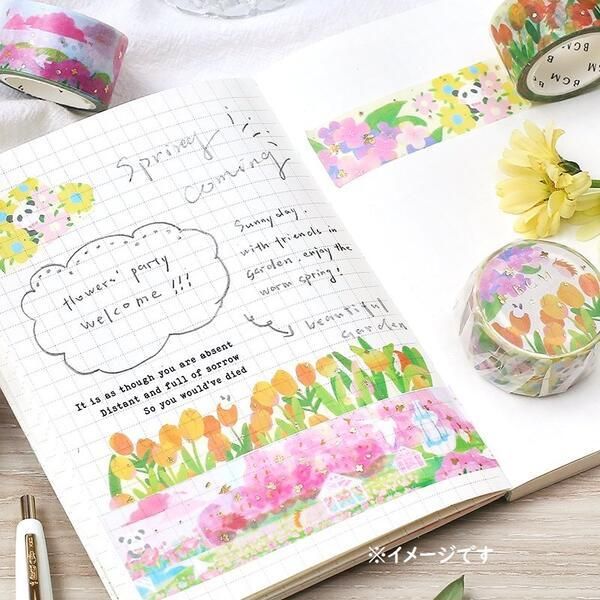 Spring
coming
Flowers' party
welcome!!!
Sunny day.
with friends in
garden, enjoy the
worm spring!
beautiful
garden
It is as though you are absent
Distant and full of sorrow
So you would've died
BGM
※イメージです